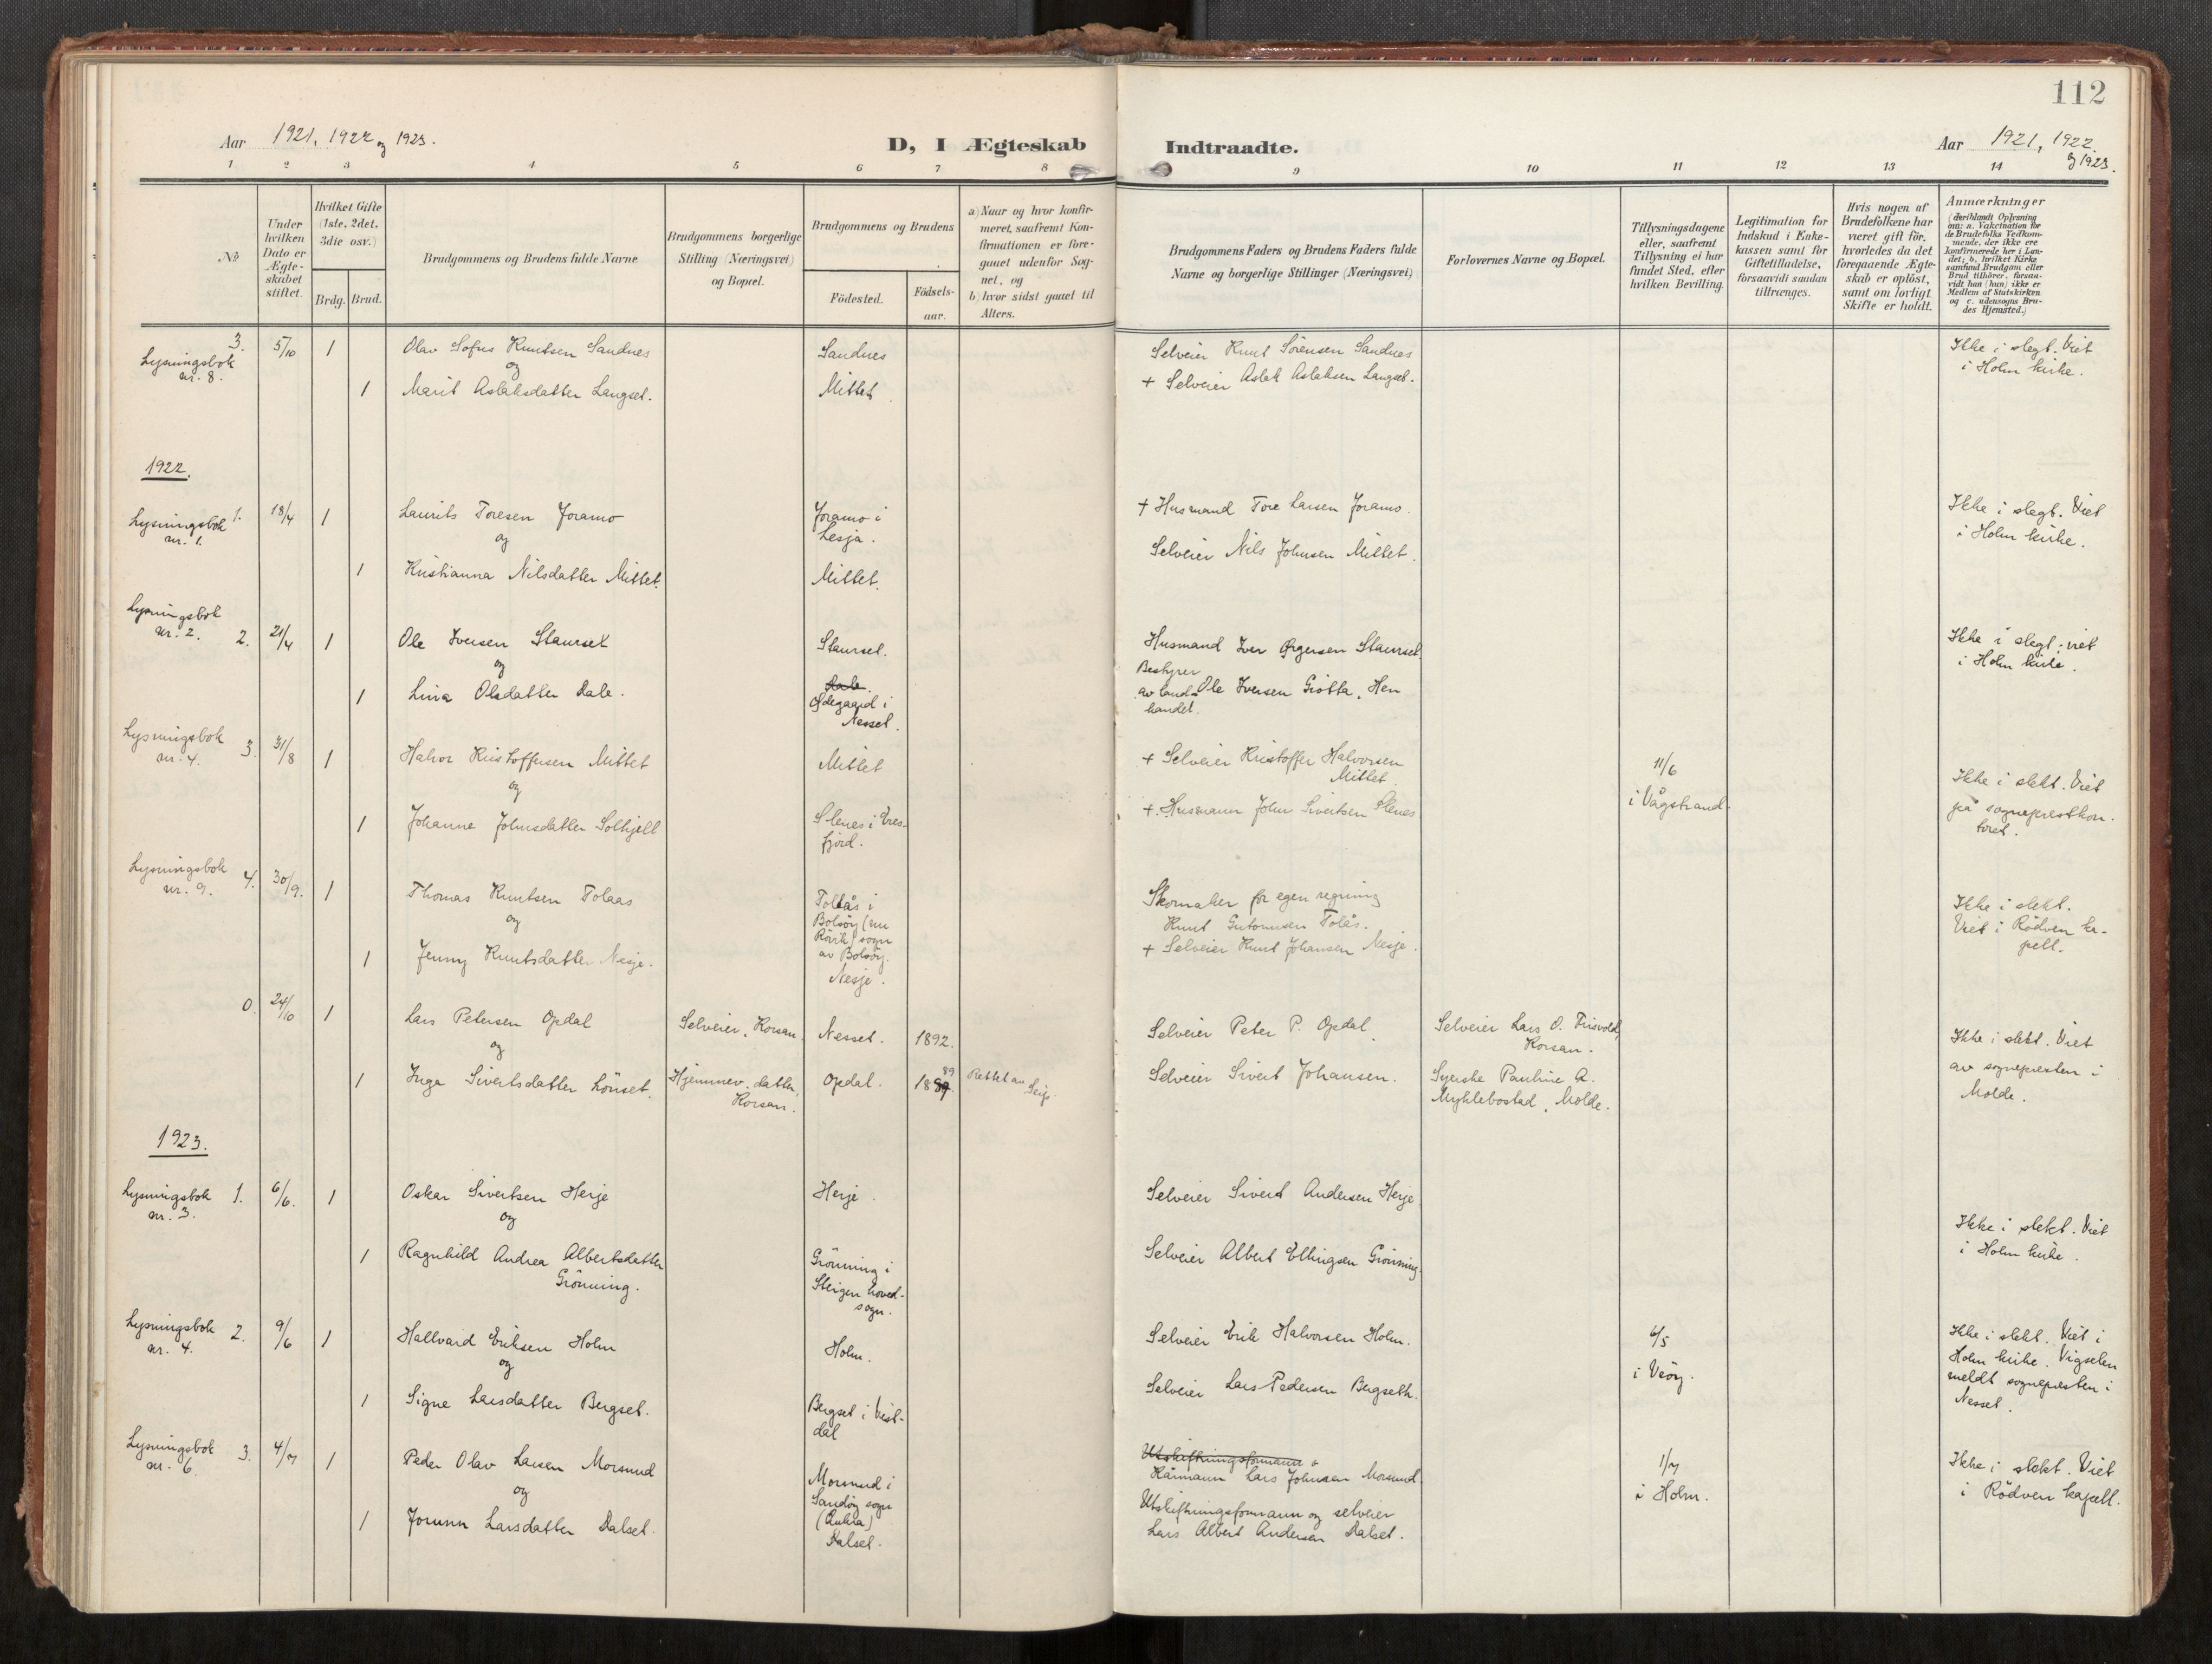 112
Aar 1921, 1922 og 1923.
D, I Ægteskab Indtraadte.
Aar 1921, 1922 og 1923.
1 2 3 4 5 6 7 8 9 10 11 12 13 14
No
Under hvilken Dato er Ægte-
skabet stiftet.
Hvilket Gifte (1ste, 2det, 3die osv.)
Brdg. Brud.
Brudgommens og Brudens fulde Navne
Brudgommens borgerlige
Stilling (Næringsvei)
og Bopæl.
Brudgommens og Brudens
Fødested.
Fødsels-
aar.
a) Naar og hvor konfir-
meret, saafremt Kon-
firmationen er fore-
gaaet udenfor Sog-
net, og
b) hvor sidst gaaet til
Alters.
Brudgommens Faders og Brudens Faders fulde
Navne og borgerlige Stillinger (Næringsvei)
Forlovernes Navne og Bopæl.
Tillysningsdagene
eller, saafremt
Tillysning ei har
fundet Sted, efter
hvilken Bevilling.
Legitimation for
Indskud i Enke-
kassen samt for
Giftetilladelse,
forsaavidt saadan
tiltrænges.
Hvis nogen af
Brudefolkene har
været gift før,
hvorledes da det
foregaaende Ægte-
skab er opløst,
samt om lovligt
Skifte er holdt.
Anmærkninger
(deriblandt Oplysning
om: a. Vakcination for
de Brudefolks Vedkom-
mende, der ikke ere
konfirmerede her i Lan-
det; b. hvilket Kirke-
samfund Brudgom eller
Brud tilhører, forsaa-
vidt han (hun) ikke er
Medlem af Statskirken
og c. udensogns Bru-
des Hjemsted.)
3.
Lysningsbok
nr. 8.
5/10 1
Olav Sofus Knutsen Sandnes
og
1 Marit Aslaksdatter Langset.
Sandnes
Mittet
Selveier Knut Sørensen Sandnes
+ Selveier Aslak Aslaksen Langset.
Ikke i slegt. Viet
i Holm kirke.
1922.
1.
Lysningsbok
nr. 1.
18/4 1
Laurits Toresen Joramo
og
1 Kristianna Nilsdatter Mittet.
Joramo i
Lesja.
Mittet.
+ Husmand Tore Larsen Joramo.
Selveier Nils Johnsen Mittet.
Ikke i slegt. Viet
i Holm kirke.
Lysningsbok
nr. 2. 2.
21/4 1
Ole Iversen Staurset
og
1 Lina Olsdatter Dale.
Staurset.
Dale.
Ødegaard i
Nesset.
Husmand Iver Ørgersen Staurset.
Bestyrer
av land-
handel. Ole Iversen Grøtta, Hen
Ikke i slegt; viet
i Holm kirke.
Lysningsbok
nr. 4. 3.
31/8 1
Halvor Kristoffersen Mittet
og
1 Johanne Johnsdatter Solhjell
Mittet
Slenes i Eres-
fjord.
+ Selveier Kristoffer Halvorsen
Mittet.
+ Husmann John Sivertsen Slenes
11/6
i Vågstrand.
Ikke i slekt. Viet
på sogneprestkon-
toret.
Lysningsbok
nr. 9. 4.
30/9. 1
Thomas Knutsen Tolaas
og
1 Jenny Knutsdatter Nesje.
Tolås i
Bolsøy (nu
Røvik) sogn
av Bolsøy.
Nesje.
Skomaker for egen regning
Knut Guttormsen Tolås.
+ Selveier Knut Johansen Nesje.
Ikke i slekt.
Viet i Rødven ka-
pell.
0. 24/10 1
Lars Petersen Opdal
og
1 Inga Sivertsdatter Lønset.
Selveier, Korsan.
Hjemmev. datter,
Korsan.
Nesset. 1892.
Opdal. 1889. 89
Rettet av
Selveier Peter P. Opdal.
Selveier Sivert Johansen.
Selveier Lars O. Frisvold,
Korsan.
Syerske Pauline A.
Myklebostad, Molde.
Ikke i slekt. Viet
av sognepresten i
Molde.
1923.
Lysningsbok
nr. 3. 1.
6/6. 1
Oskar Sivertsen Herje
og
1 Ragnhild Andrea Albertsdatter
Grønning.
Herje.
Grønning i
Steigen hoved-
sogn.
Selveier Sivert Andersen Herje
Selveier Albert Ellingsen Grønning.
Ikke i slekt. Viet
i Holm kirke.
Lysningsbok
nr. 4. 2.
9/6 1
Hallvard Eriksen Holm
og
1 Signe Larsdatter Bergset.
Holm.
Bergset i Vist-
dal
Selveier Erik Halvorsen Holm.
Selveier Lars Pedersen Bergseth.
6/5
i Veøy.
Ikke i slekt. Viet i
Holm kirke. Vigselen
meldt sognepresten i
Nesset.
Lysningsbok
nr. 6. 3.
4/7 1
Peder Olav Larsen Morsund
og
1 Jorunn Larsdatter Dalset.
Morsund i
Sandøy sogn
(Aukra)
Dalset.
Utskiftningsformann
Kårmann Lars Johnsen Morsund
Utskiftningsformann og selveier
Lars Albert Andersen Dalset.
1/7
i Holm.
Ikke i slekt. Viet
i Rødven kapell.